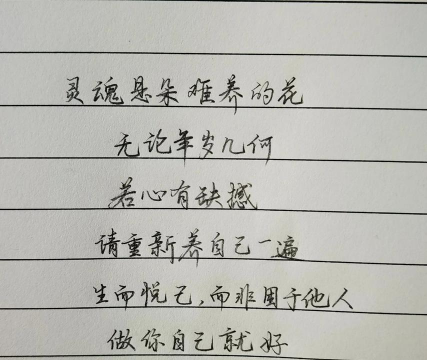 灵魂是朵难养的花
无论年岁几何
若心有缺憾
请重新养自己一遍
生而悦己,而非困于他人
做你自己就好